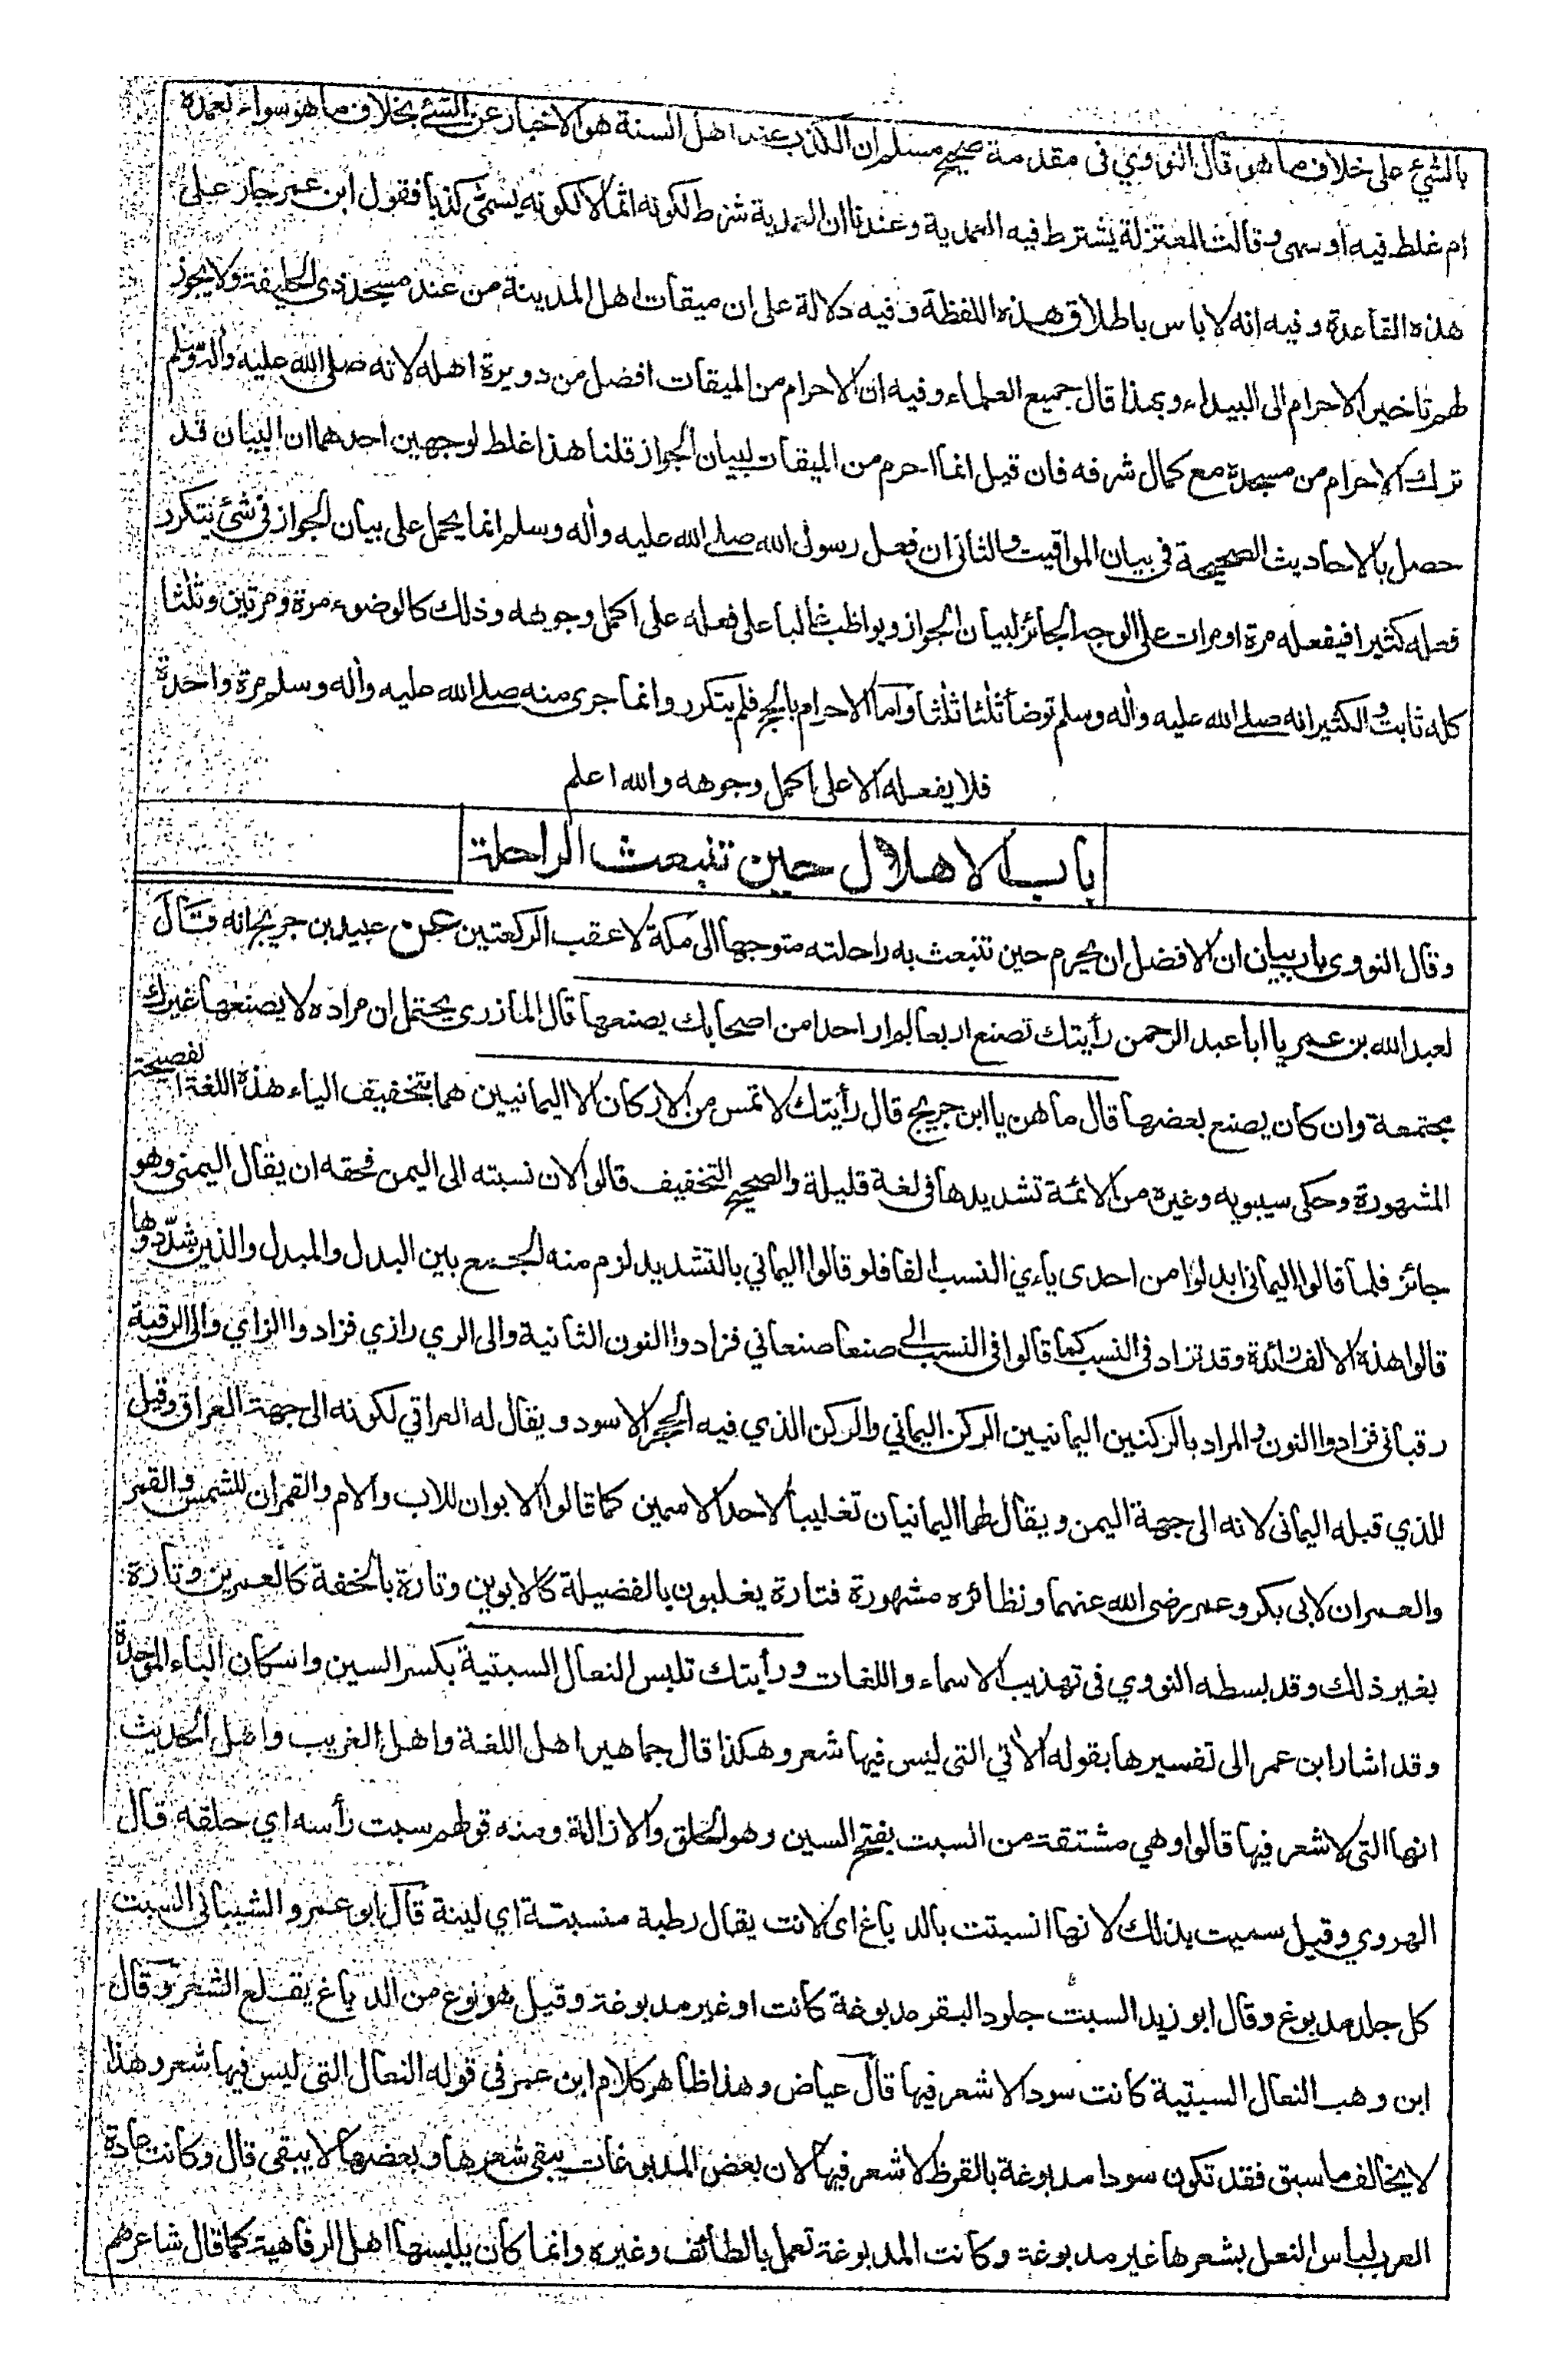 بالشيء على خلاف ما هو قال النووي فى مقدمة صحيح مسلم ان الكذب عند اهل السنة هو الاخبار عن الشئ بخلاف ما هو سواء تعمده
ام غلط فيه او سهى وقالت المعتزلة يشترط فيه العمدية وعندنا ان العمدية شرط لكونه اثما لا لكونه يسمى كذبا فقول ابن عمر جار على
هذه القاعدة وفيه انه لا باس باطلاق هذه اللفظة وفيه دلالة على ان ميقات اهل المدينة من عند مسجد ذى الحليفة ولا يجوز
لهم تاخير الاحرام الى البيداء وبهذا قال جميع العلماء وفيه ان الاحرام من الميقات افضل من دويرة اهله لانه صلى الله عليه واله وسلم
ترك الاحرام من مسجده مع كمال شرفه فان قيل انما احرم من الميقات لبيان الجواز قلنا هذا غلط لوجهين احدهما ان البيان قد
حصل بالاحاديث الصحيحة فى بيان المواقيت والثانى ان فعل رسول الله صلى الله عليه واله وسلم انما يحمل على بيان الجواز فى شئ يتكرر
فعله كثيرا فيفعله مرة او مرات على الوجه الجائز لبيان الجواز ويواظب غالبا على فعله على اكمل وجوهه وذلك كالوضوء مرة ومرتين وثلثا
كله ثابت والكثير انه صلى الله عليه واله وسلم توضأ ثلثا ثلثا واما الاحرام بالحج فلم يتكرر وانما جرى منه صلى الله عليه واله وسلم مرة واحدة
فلا يفعله الا على اكمل وجوهه والله اعلم
باب الاهلال حين تنبعث الراحلة
وقال النووى باب بيان ان الافضل ان يحرم حين تنبعث به راحلته متوجها الى مكة لا عقب الركعتين عن عبيد بن جريج انه قال
لعبد الله بن عمر يا ابا عبد الرحمن رأيتك تصنع اربعا لم ار احدا من اصحابك يصنعها قال المازرى يحتمل ان مراده لا يصنعها غيرك
مجتمعة وان كان يصنع بعضها قال ما هن يا ابن جريج قال رأيتك لا تمس من الاركان الا اليمانيين هما بتخفيف الياء هذه اللغة الفصيحة
المشهورة وحكى سيبويه وغيره من الائمة تشديدها فى لغة قليلة والصحيح التخفيف قالوا لان نسبته الى اليمن فحقه ان يقال اليمنى وهو
جائز فلما قالوا اليمانى ابدلوا من احدى ياءي النسب الفا فلو قالوا اليماني بالتشديد لزم منه الجمع بين البدل والمبدل والذين شدّدوها
قالوا هذه الالف زائدة وقد تزاد فى النسب كما قالوا فى النسب الى صنعا صنعاني فزادوا النون الثانية والى الري رازي فزادوا الزاي والى الرقبة
رقبانى فزادوا النون والمراد بالركنين اليمانيين الركن اليماني والركن الذي فيه الحجر الاسود ويقال له العراقي لكونه الى جهة العراق وقيل
للذي قبله اليمانى لانه الى جهة اليمن ويقال لهما اليمانيان تغليبا لاحد الاسمين كما قالوا الابوان للاب والام والقمران للشمس والقمر
والعمران لابى بكر وعمر رضى الله عنهما ونظائره مشهورة فتارة يغلبون بالفضيلة كالابوين وتارة بالخفة كالعمرين وتارة
بغير ذلك وقد بسطه النووي فى تهذيب الاسماء واللغات ورأيتك تلبس النعال السبتية بكسر السين واسكان الباء الموحدة
وقد اشار ابن عمر الى تفسيرها بقوله الاتي التى ليس فيها شعر وهكذا قال جماهير اهل اللغة واهل الغريب واهل الحديث
انها التى لا شعر فيها قالوا وهي مشتقة من السبت بفتح السين وهو الحلق والازالة ومنه قولهم سبت رأسه اي حلقه قال
الهروي وقيل سميت بذلك لانها انسبتت بالدباغ اى لانت يقال رطبة منسبتة اي لينة قال ابو عمرو الشيبانى السبت
كل جلد مدبوغ وقال ابو زيد السبت جلود البقر مدبوغة كانت او غير مدبوغة وقيل هو نوع من الدباغ يقلع الشعر وقال
ابن وهب النعال السبتية كانت سودا لا شعر فيها قال عياض وهذا ظاهر كلام ابن عمر فى قوله النعال التى ليس فيها شعر وهذا
لا يخالف ما سبق فقد تكون سودا مدبوغة بالقرظ لا شعر فيها لان بعض المدبوغات يبقى شعرها وبعضها لا يبقى قال وكانت عادة
العرب لباس النعل بشعرها غير مدبوغة وكانت المدبوغة تعمل بالطائف وغيره وانما كان يلبسها اهل الرفاهية كما قال شاعرهم